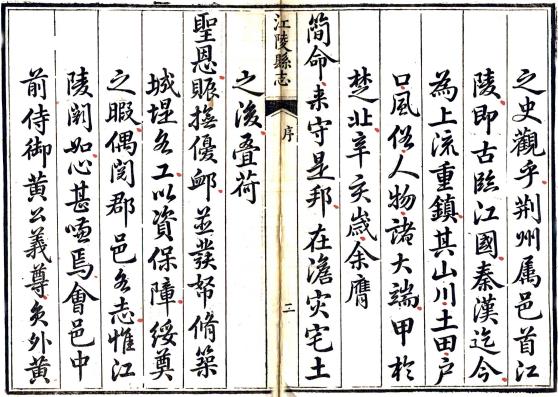 之史觀乎荆州属邑首江
陵即古臨江國秦漢迄今
為上流重鎮其山川土田户
口風俗人物諸大端甲於
楚北辛亥歲余膺
簡命来守是邦在澹灾宅土
江陵縣志
序
三
之後叠荷
聖恩賑撫優卹並發帑脩築
城堤各工以資保障綏奠
之暇偶閲郡邑各志惟江
陵闕如心甚焉會邑中
前侍御黄公義尊員外黄